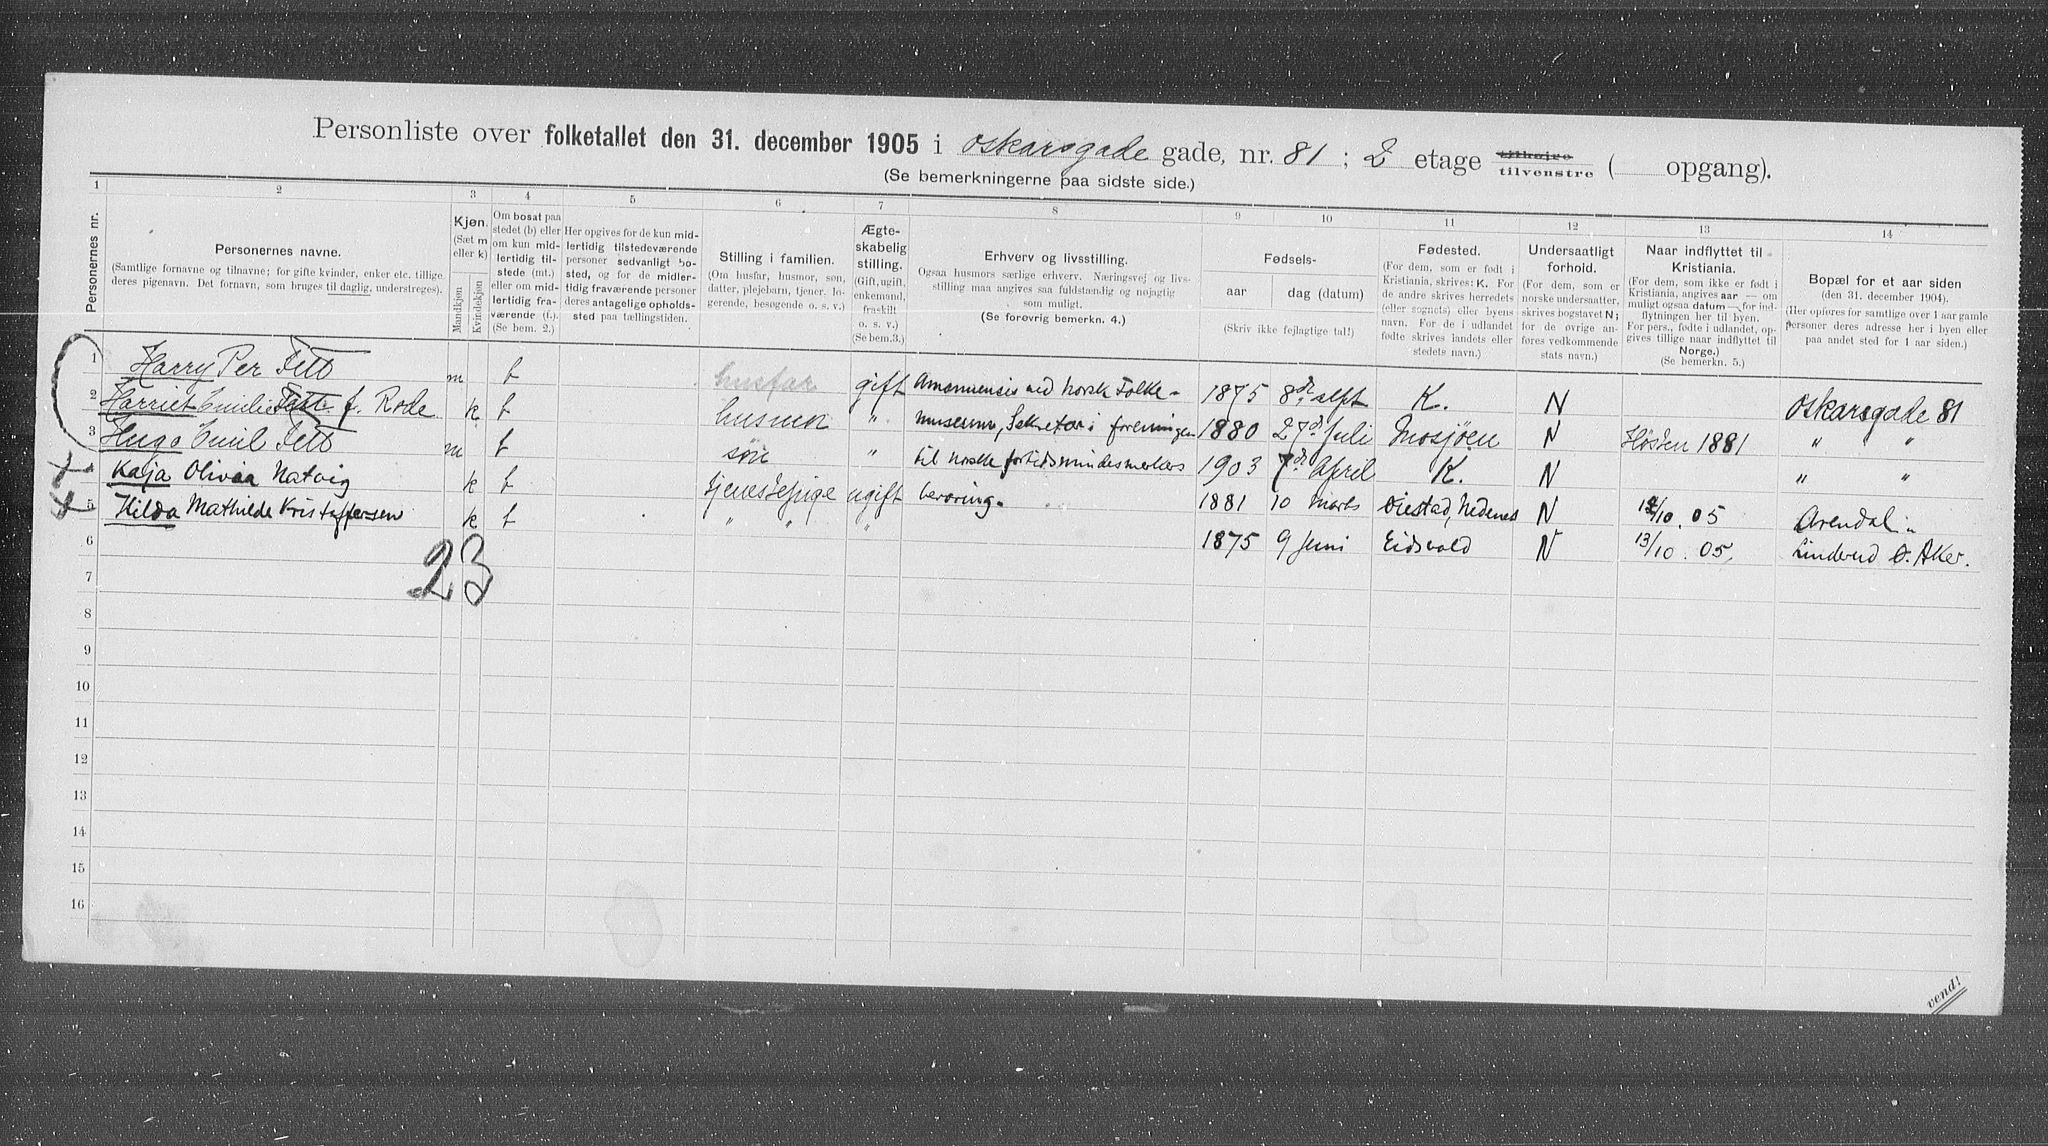 Personliste over folketallet den 31. december 1905 i Oskarsgade gade, nr. 81 ; 2 etage tilhøire tilvenstre ( opgang).
(Se bemerkningerne paa sidste side.)
1 2 3 4 5 6 7 8 9 10 11 12 13 14
Personernes nr.
Personernes navne.
(Samtlige fornavne og tilnavne; for gifte kvinder, enker etc. tillige
deres pigenavn. Det fornavn, som bruges til daglig, understreges).
Kjøn.
(Sæt m
eller k)
Mandkjøn
Kvindekjøn
Om bosat paa
stedet (b) eller
om kun mid-
lertidig til-
stede (mt.)
eller om mid-
lertidig fra-
værende (f.).
(Se bem. 2.)
Her opgives for de kun mid-
lertidig tilstedeværende
personer sedvanlig bo-
sted, og for de midler-
tidig fraværende personer
deres antagelige opholds-
sted paa tællingstiden.
Stilling i familien.
(Om husfar, husmor, søn,
datter, plejebarn, tjener, lo-
gerende, besøgende o. s. v.)
Ægte-
skabelig
stilling.
(Gift, ugift,
enkemand,
fraskilt
o. s. v.)
(Se bem.3.)
Erhverv og livsstilling.
Ogsaa husmors særlige erhverv. Næringsvej og livs-
stilling maa angives saa fuldstændig og nøjagtig
som muligt.
(Se forøvrig bemerkn. 4.)
Fødsels-
aar
dag (datum)
(Skriv ikke fejlagtige tal!)
Fødested.
(For dem, som er født i
Kristiania, skrives: K. For
de andre skrives herredets
(eller sognets) eller byens
navn. For de i udlandet
fødte skrives landets eller
stedets navn.)
Undersaatligt
forhold.
(For dem, som er
norske undersaatter,
skrives bogstavet N;
for de øvrige an-
føres vedkommende
stats navn.)
Naar indflyttet til
Kristiania.
(For dem, som ikke er født i
Kristiania, angives aar — om
muligt ogsaa datum — for ind-
flytningen her til byen.
For pers., fødte i udlandet, op-
gives tillige naar indflyttet til
Norge.)
(Se bemerkn. 5.)
Bopæl for et aar siden
(den 31. december 1904).
(Her opføres for samtlige over 1 aar gamle
personer deres adresse her i byen eller
paa andet sted for 1 aar siden.)
1 Harry Per Fett m b husfar gift Amanuensis ved Norsk Folke- 1875 8de sept K. N Oskarsgade 81
2 Harriet Emilie Fett f. Rode k b husmor " museum, Sekretær i foreningen 1880 27d Juli Mosjøen N Høsten 1881 " "
3 Hugo Emil Fett m b søn " til norske fortidsmindesmerkers 1903 7de April K. N " "
Katja Olivia Natvig k b tjenestepige ugift bevaring. 1881 10 Marts Øiestad, Nedenes N 12/10. 05 Arendal
5 Hilda Mathilde Kristoffersen k b " " " 1875 9 Juni Eidsvold N 13/10. 05. Linderud Ø. Aker.
6
23
7
8
9
10
11
12
13
14
15
16
vend!